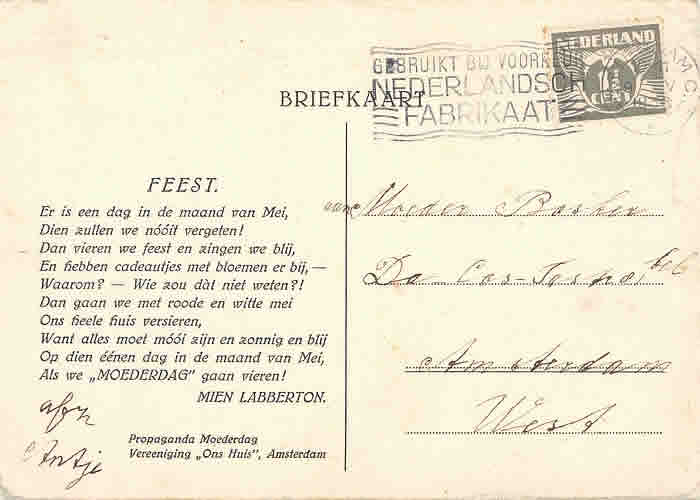 NEDERLAND
1½
CENT
GEBRUIKT BIJ VOORKEUR
NEDERLANDSCH
FABRIKAAT
BRIEFKAART
FEEST.
Er is een dag in de maand van Mei,
Dien zullen we nóóit vergeten!
Dan vieren we feest en zingen we blij,
En hebben cadeautjes met bloemen er bij, —
Waarom? — Wie zou dàt niet weten?!
Dan gaan we met roode en witte mei
Ons heele huis versieren,
Want alles moet móói zijn en zonnig en blij
Op dien éénen dag in de maand van Mei,
Als we „MOEDERDAG" gaan vieren!
MIEN LABBERTON.
Antje
Propaganda Moederdag
Vereeniging „Ons Huis", Amsterdam
aan Moeder
Da Cos
Amsterdam
West